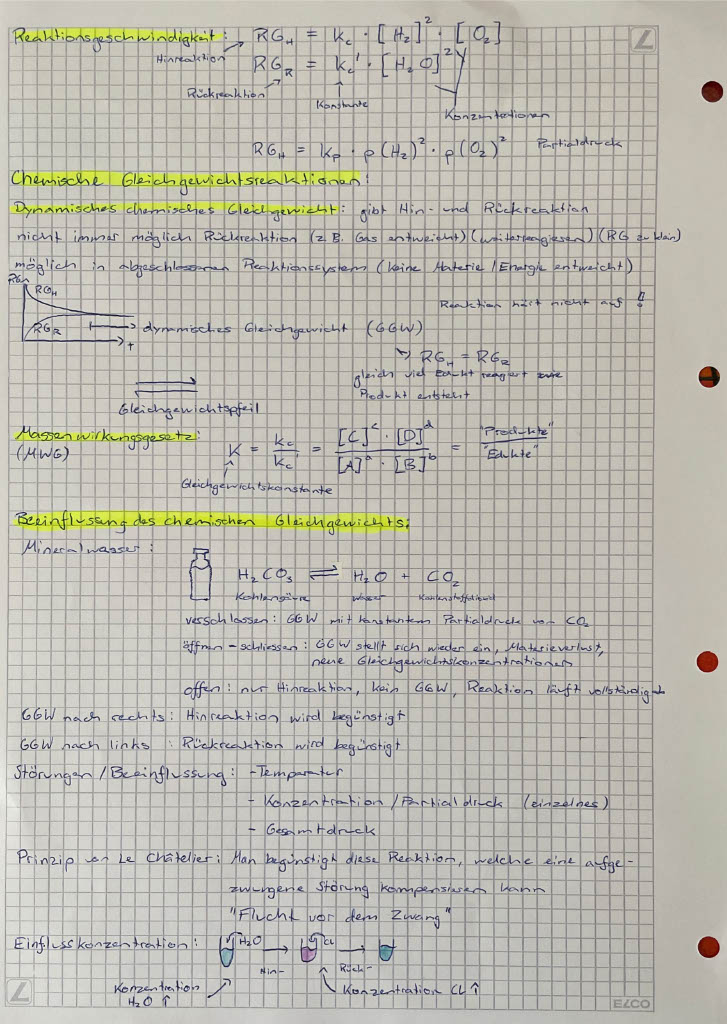 Reaktionsgeschwindigkeit: RG_H = k_c · [H₂]² · [O₂]
Hinreaktion
RG_R = k_c' · [H₂O]²
Rückreaktion
Konstante
Konzentrationen
RG_H = k_p · p(H₂)² · p(O₂)² Partialdruck
Chemische Gleichgewichtsreaktionen:
Dynamisches chemisches Gleichgewicht: gibt Hin- und Rückreaktion
nicht immer möglich Rückreaktion (z.B. Gas entweicht) (weiterreagieren) (RG zu klein)
möglich in abgeschlossenen Reaktionssystem (keine Materie/Energie entweicht)
RG_H
Reaktion hört nicht auf !!
RG_R dynamisches Gleichgewicht (GGW)
t
↳ RG_H = RG_R
gleich viel Edukt reagiert wie
Produkt entsteht
Gleichgewichtspfeil
Massenwirkungsgesetz:
(MWG) K = k_c / k_c' = [C]^c · [D]^d / [A]^a · [B]^b = "Produkte" / "Edukte"
Gleichgewichtskonstante
Beeinflussung des chemischen Gleichgewichts:
Mineralwasser:
H₂CO₃ ⇌ H₂O + CO₂
Kohlensäure Wasser Kohlenstoffdioxid
verschlossen: GGW mit konstantem Partialdruck von CO₂
öffnen-schliessen: GGW stellt sich wieder ein, Materieverlust,
neue Gleichgewichtskonzentrationen
offen: nur Hinreaktion, kein GGW, Reaktion läuft vollständig ab
GGW nach rechts: Hinreaktion wird begünstigt
GGW nach links: Rückreaktion wird begünstigt
Störungen/Beeinflussung: -Temperatur
- Konzentration/Partialdruck (einzelnes)
- Gesamtdruck
Prinzip von Le Châtelier: Man begünstigt diese Reaktion, welche eine aufge-
zwungene Störung kompensieren kann
"Flucht vor dem Zwang"
Einflusskonzentration: H₂O → CL →
Hin- Rück-
Konzentration H₂O ↑
Konzentration CL ↑
ELCO